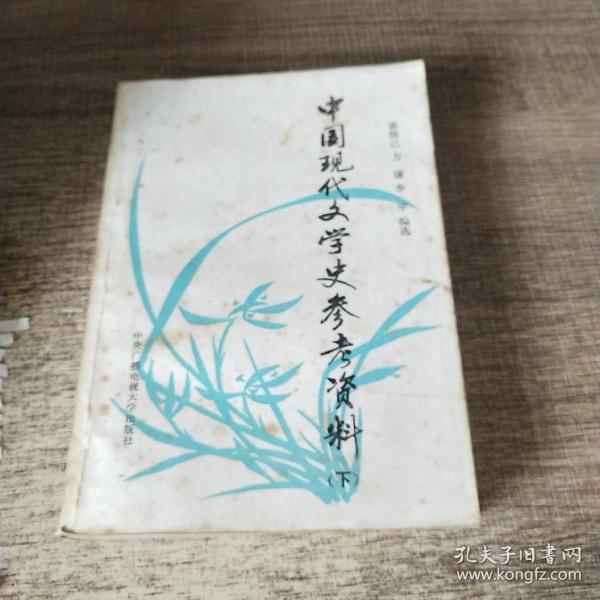 中国现代文学史参考资料
（下）
己 方 谦 李 平 编选
中央广播电视大学出版社
孔夫子旧书网
www.kongfz.com